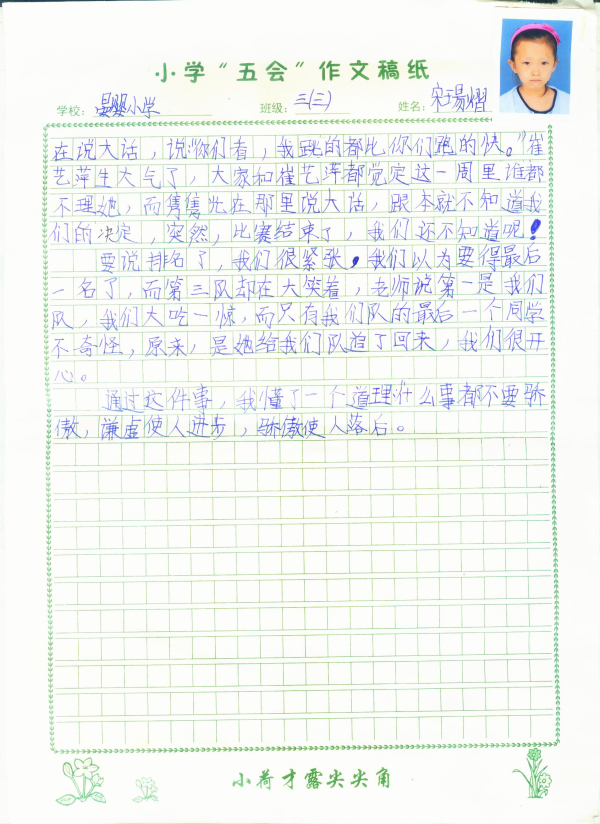 小学“五会”作文稿纸
学校：晏婴小学 班级：三(三) 姓名：宋瑒熠
在说大话，说“你们看，我跑的都比你们跑的快。”崔
艺萍生大气了，大家和崔艺萍都觉定这一周里谁都
不理她，而隽隽光在那里说大话，跟本就不知道我
们的决定，突然，比赛结束了，我们还不知道呢！
要说排名了，我们很紧张，我们以为要得最后
一名了，而第三队却在大笑着，老师说第一是我们
队，我们大吃一惊，而只有我们队的最后一个同学
不奇怪，原来，是她给我们队追了回来，我们很开
心。
通过这件事，我懂了一个道理：什么事都不要骄
傲，谦虚使人进步，骄傲使人落后。
小荷才露尖尖角